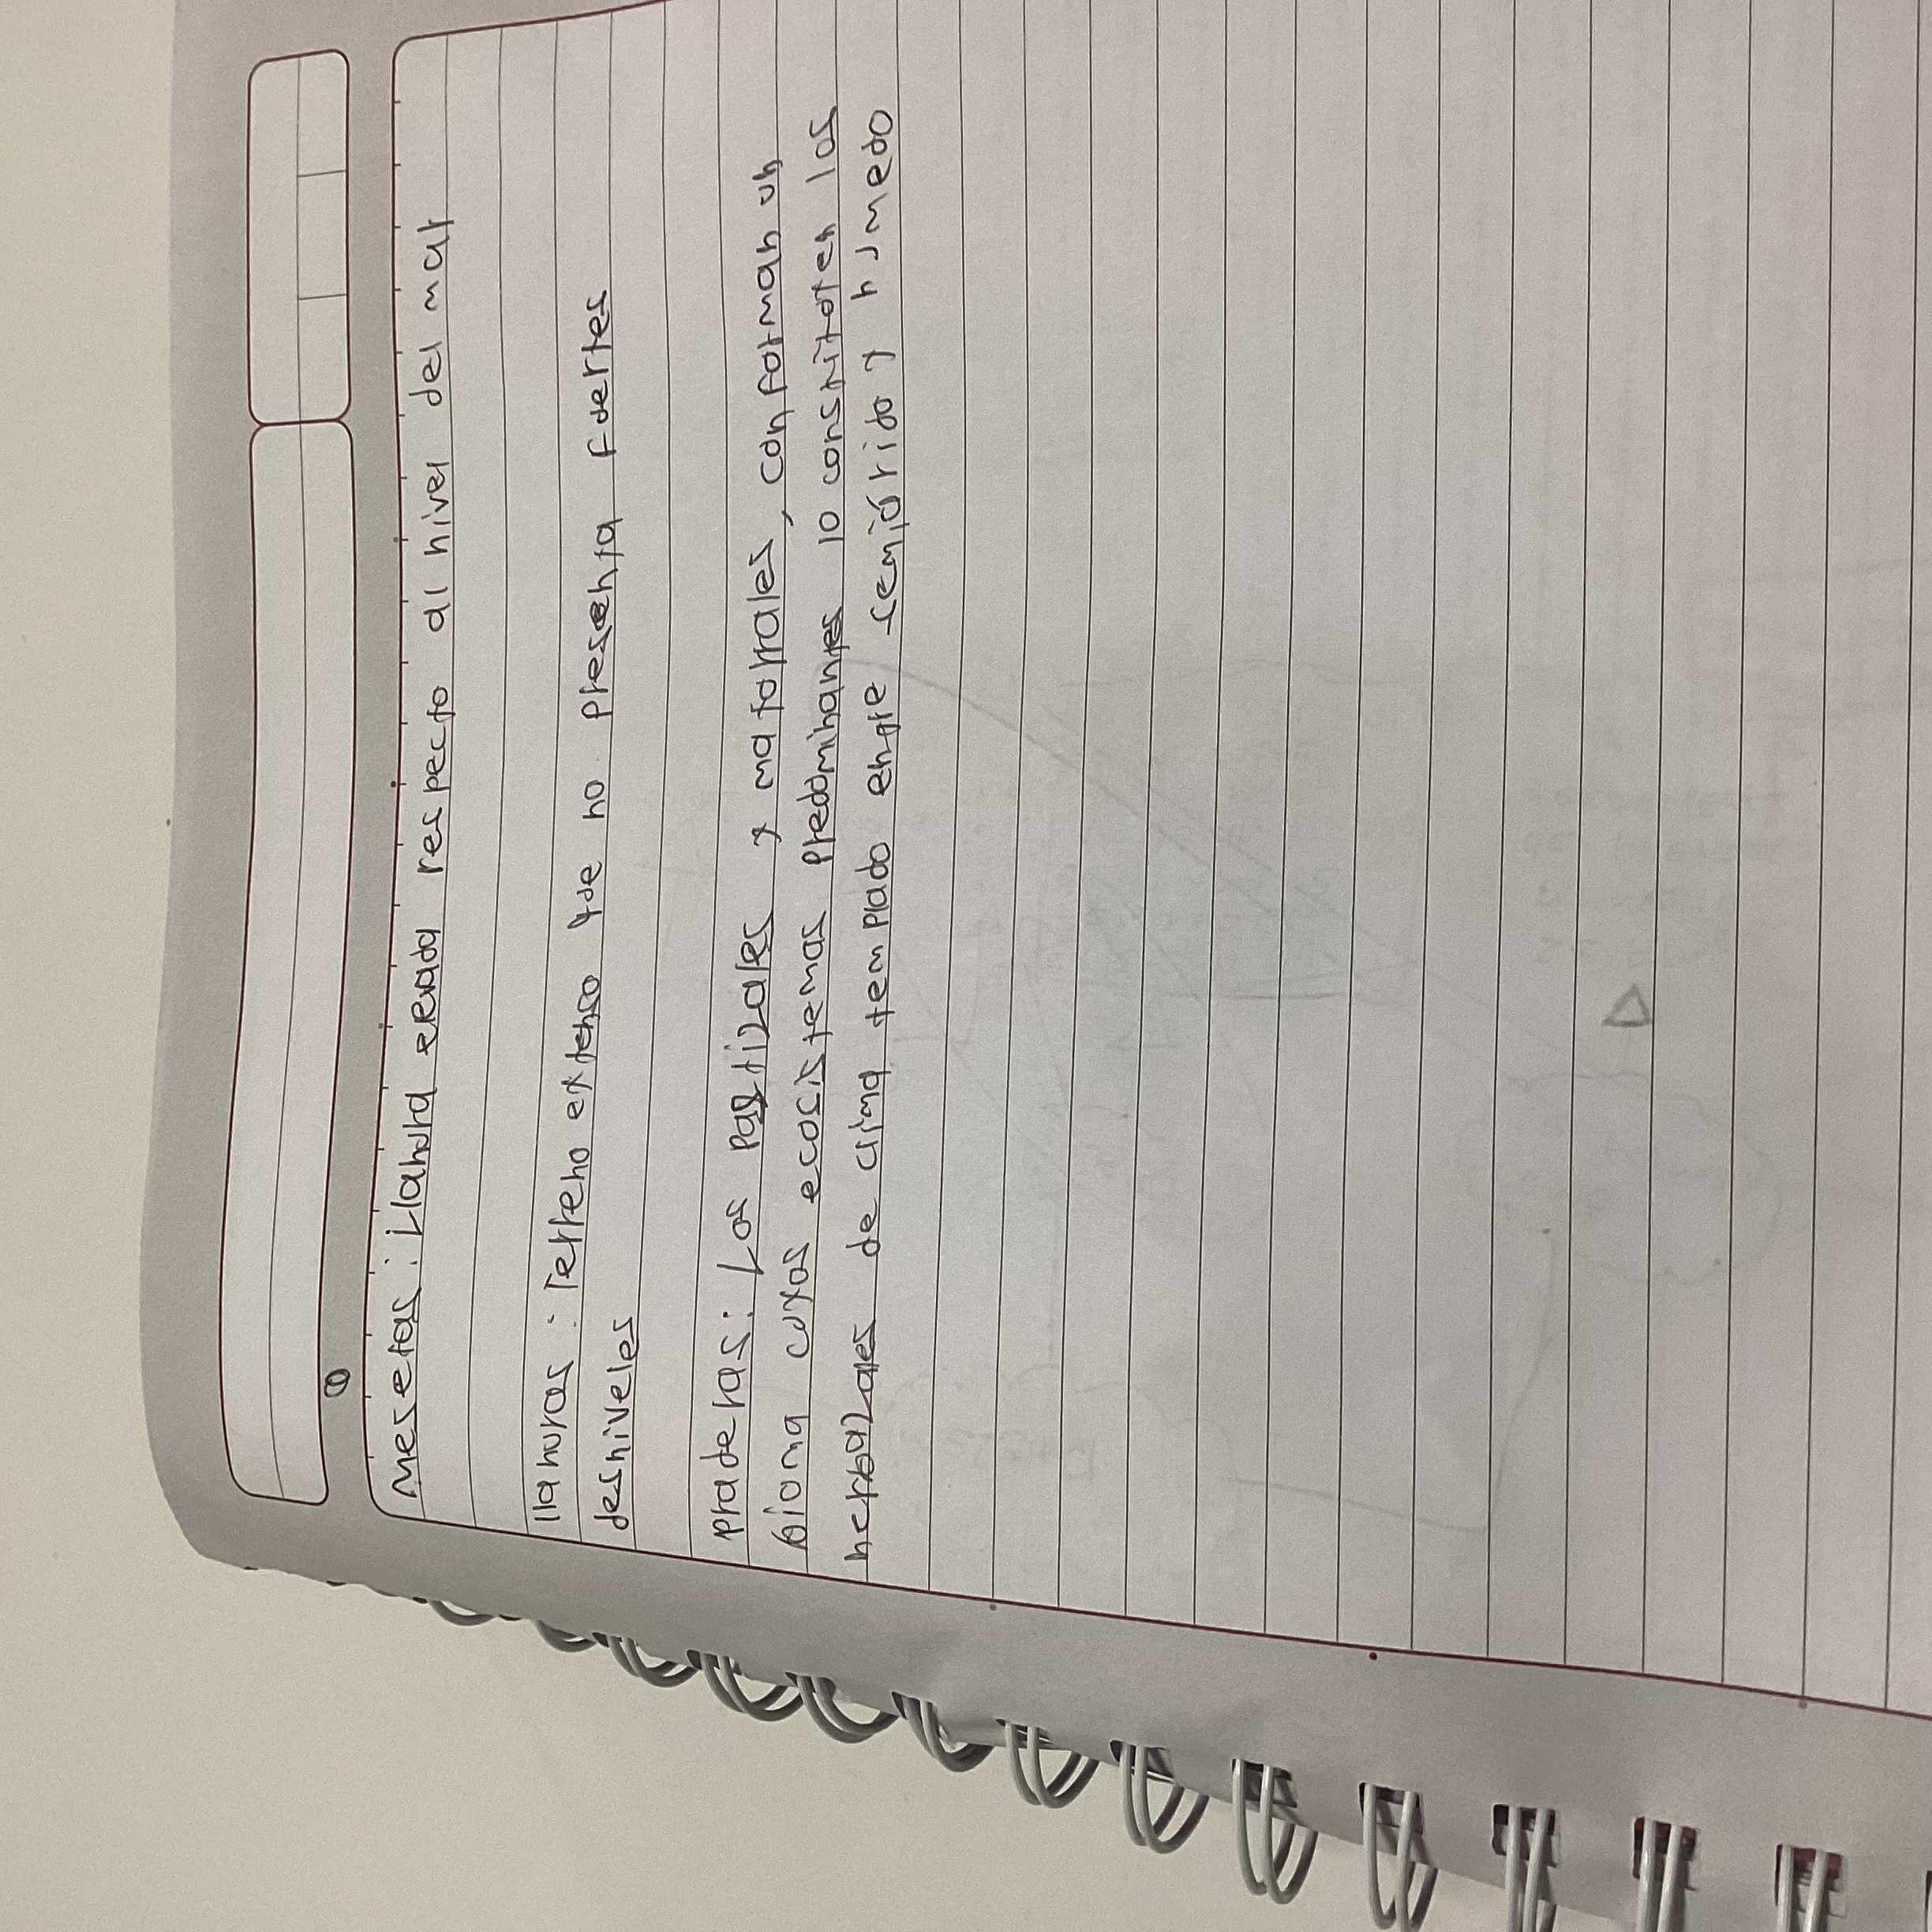 mesetas: Llanura elevada respecto al nivel del mar
llanuras: Terreno extenso que no presenta fuertes
desniveles
praderas: Los pastizales y matorrales, conforman un
bioma cuyos ecosistemas predominantes lo constituyen los
herbazales de clima templado entre semiárido y humedo